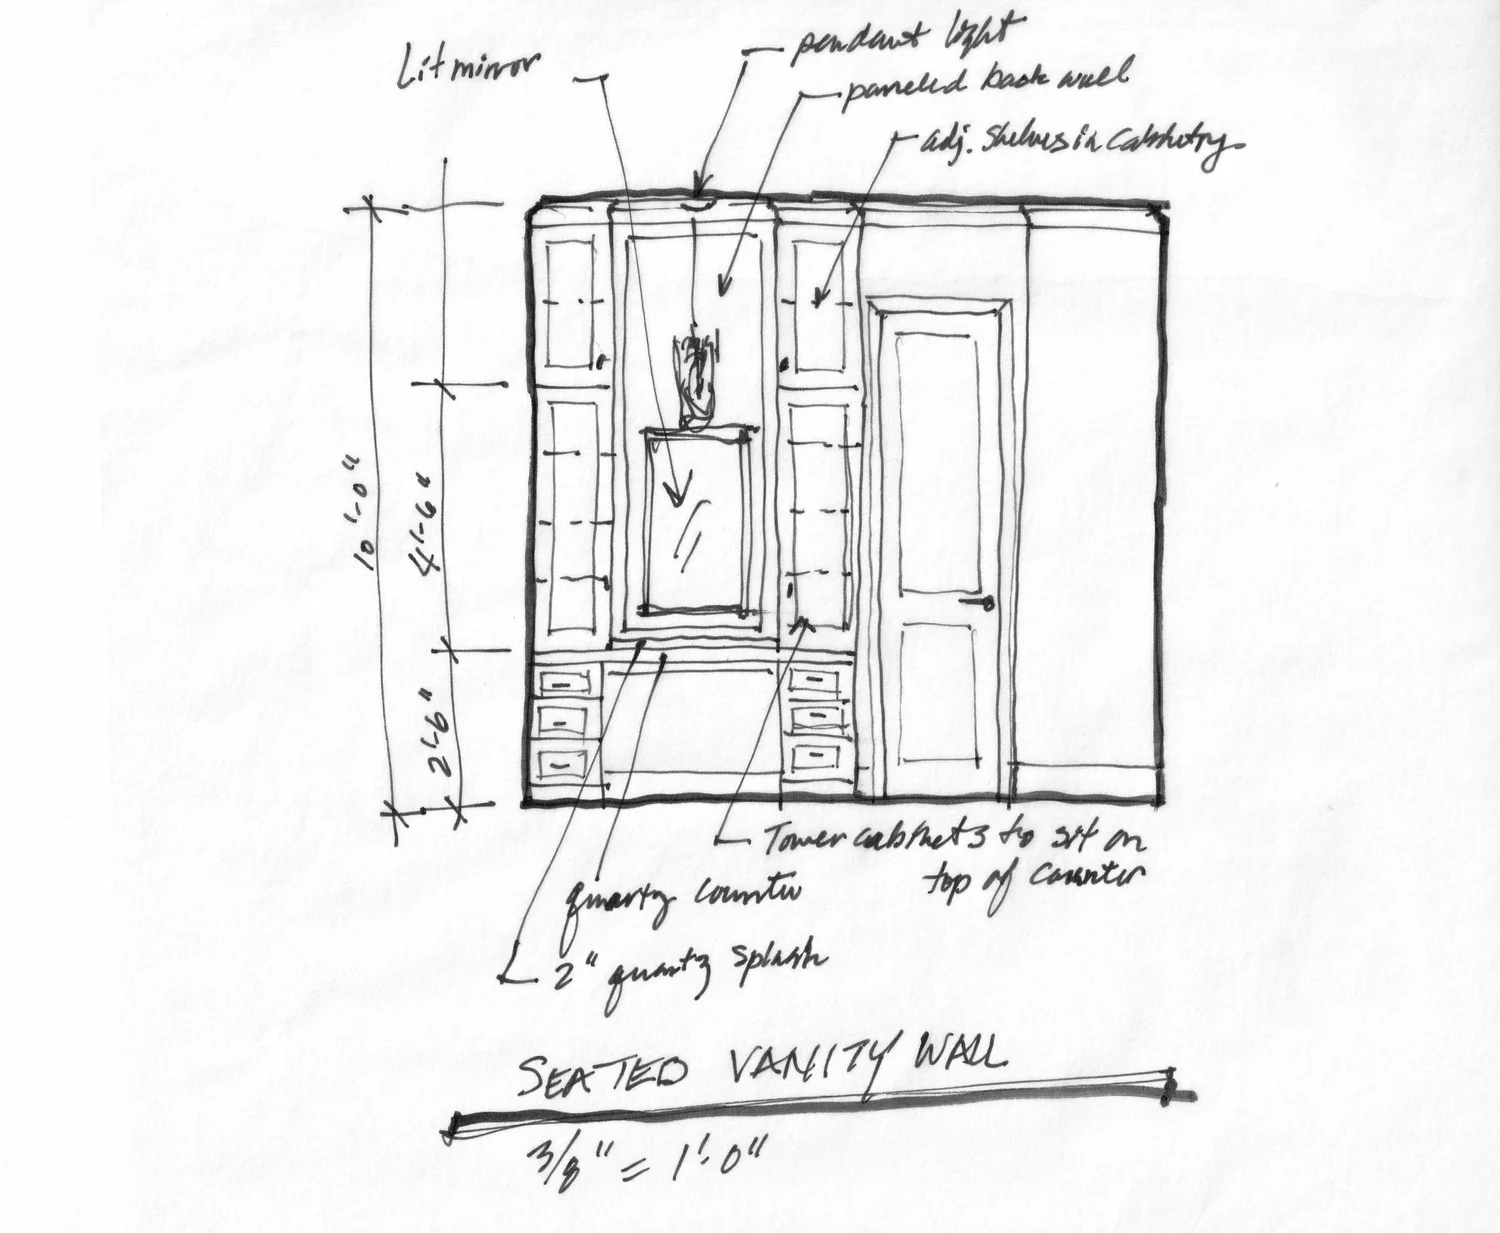 Lit mirror
pendant light
paneled back wall
adj. shelves in cabinetry
10'-0"
4'-6"
2'-6"
Tower cabinets to sit on
top of counter
quartz counter
2" quartz splash
SEATED VANITY WALL
3/8" = 1'-0"